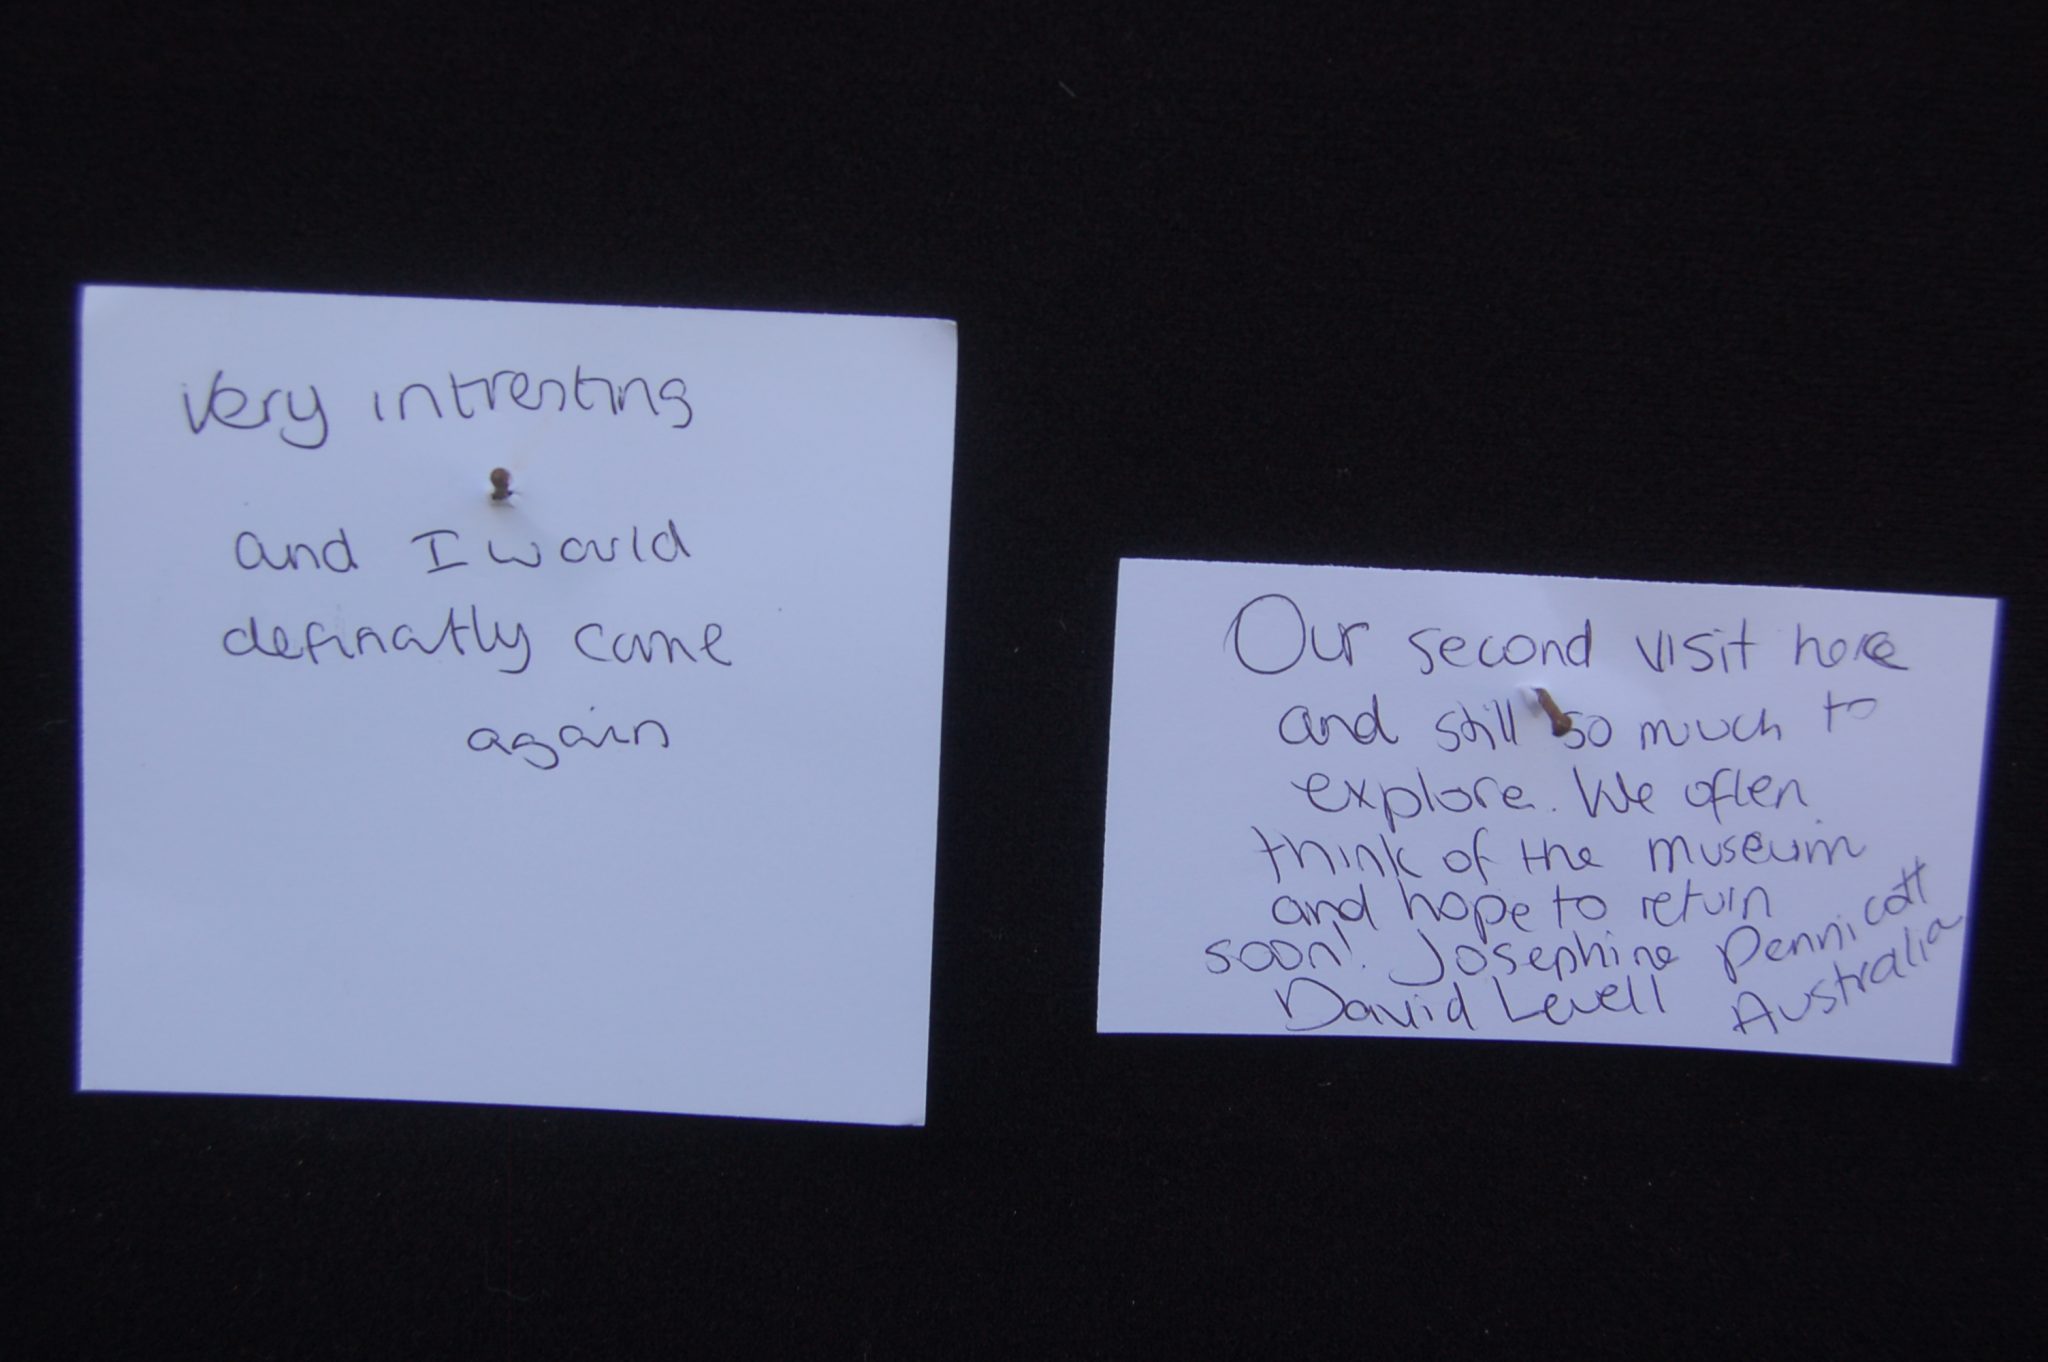 Very intresting
and I would
definatly come
again
Our second visit here
and still so much to
explore. We often
think of the museum
and hope to return
soon! Josephine Pennicott
David Levell Australia